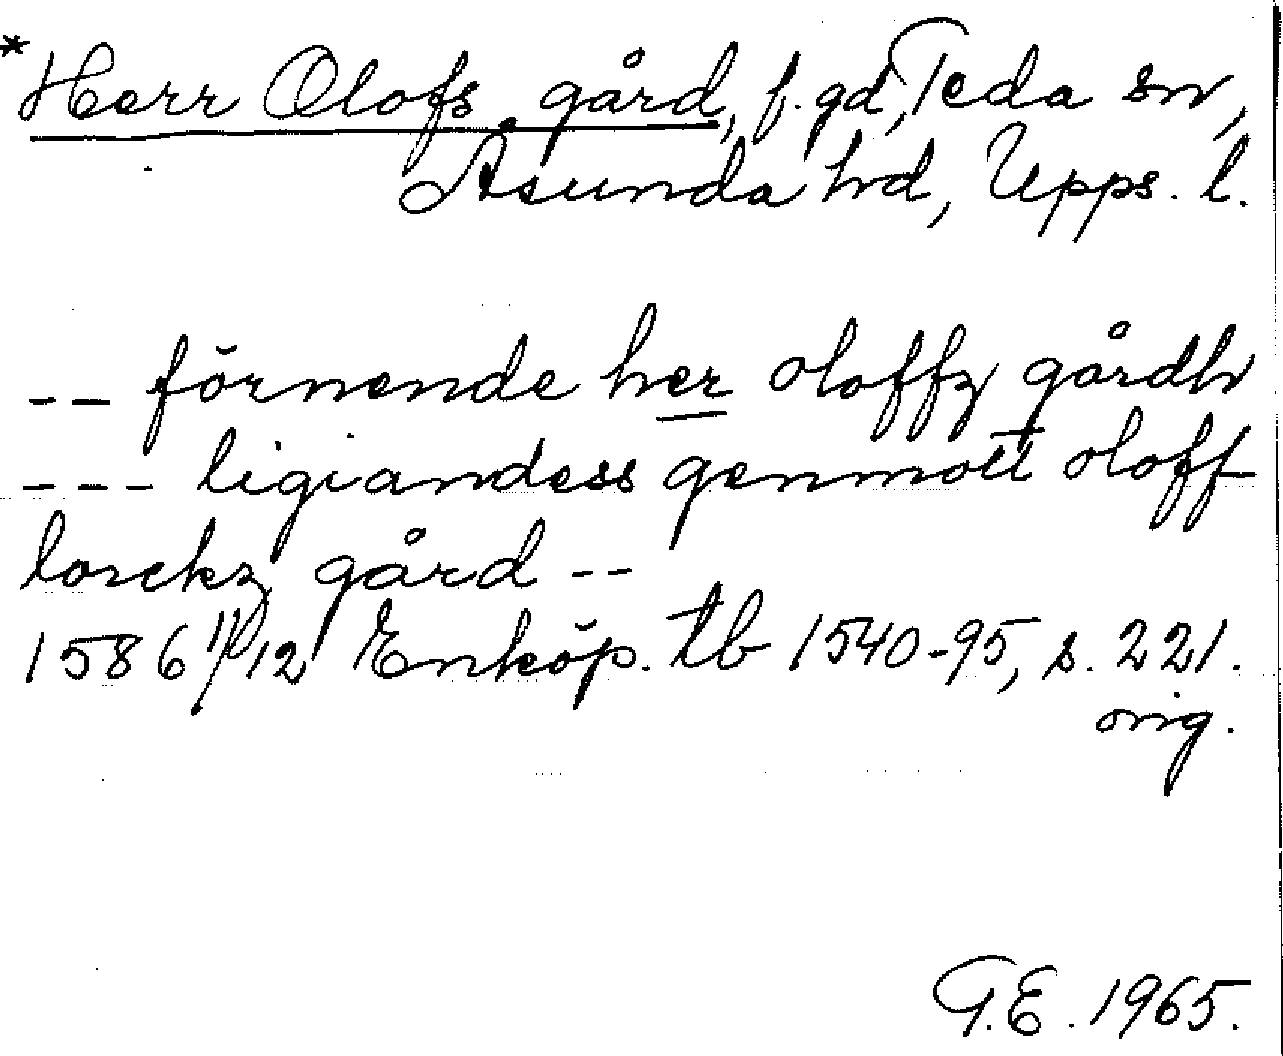 *Herr Olofs gård, f. gd, Teda sn,
Åsunda hd, Upps. l.
-- förnende her oloffz gårdh
--- ligiandess genmott oloff
lorekz gård --
1586 11/12 Enköp. tb 1540-95, s. 221.
orig.
T.E. 1965.